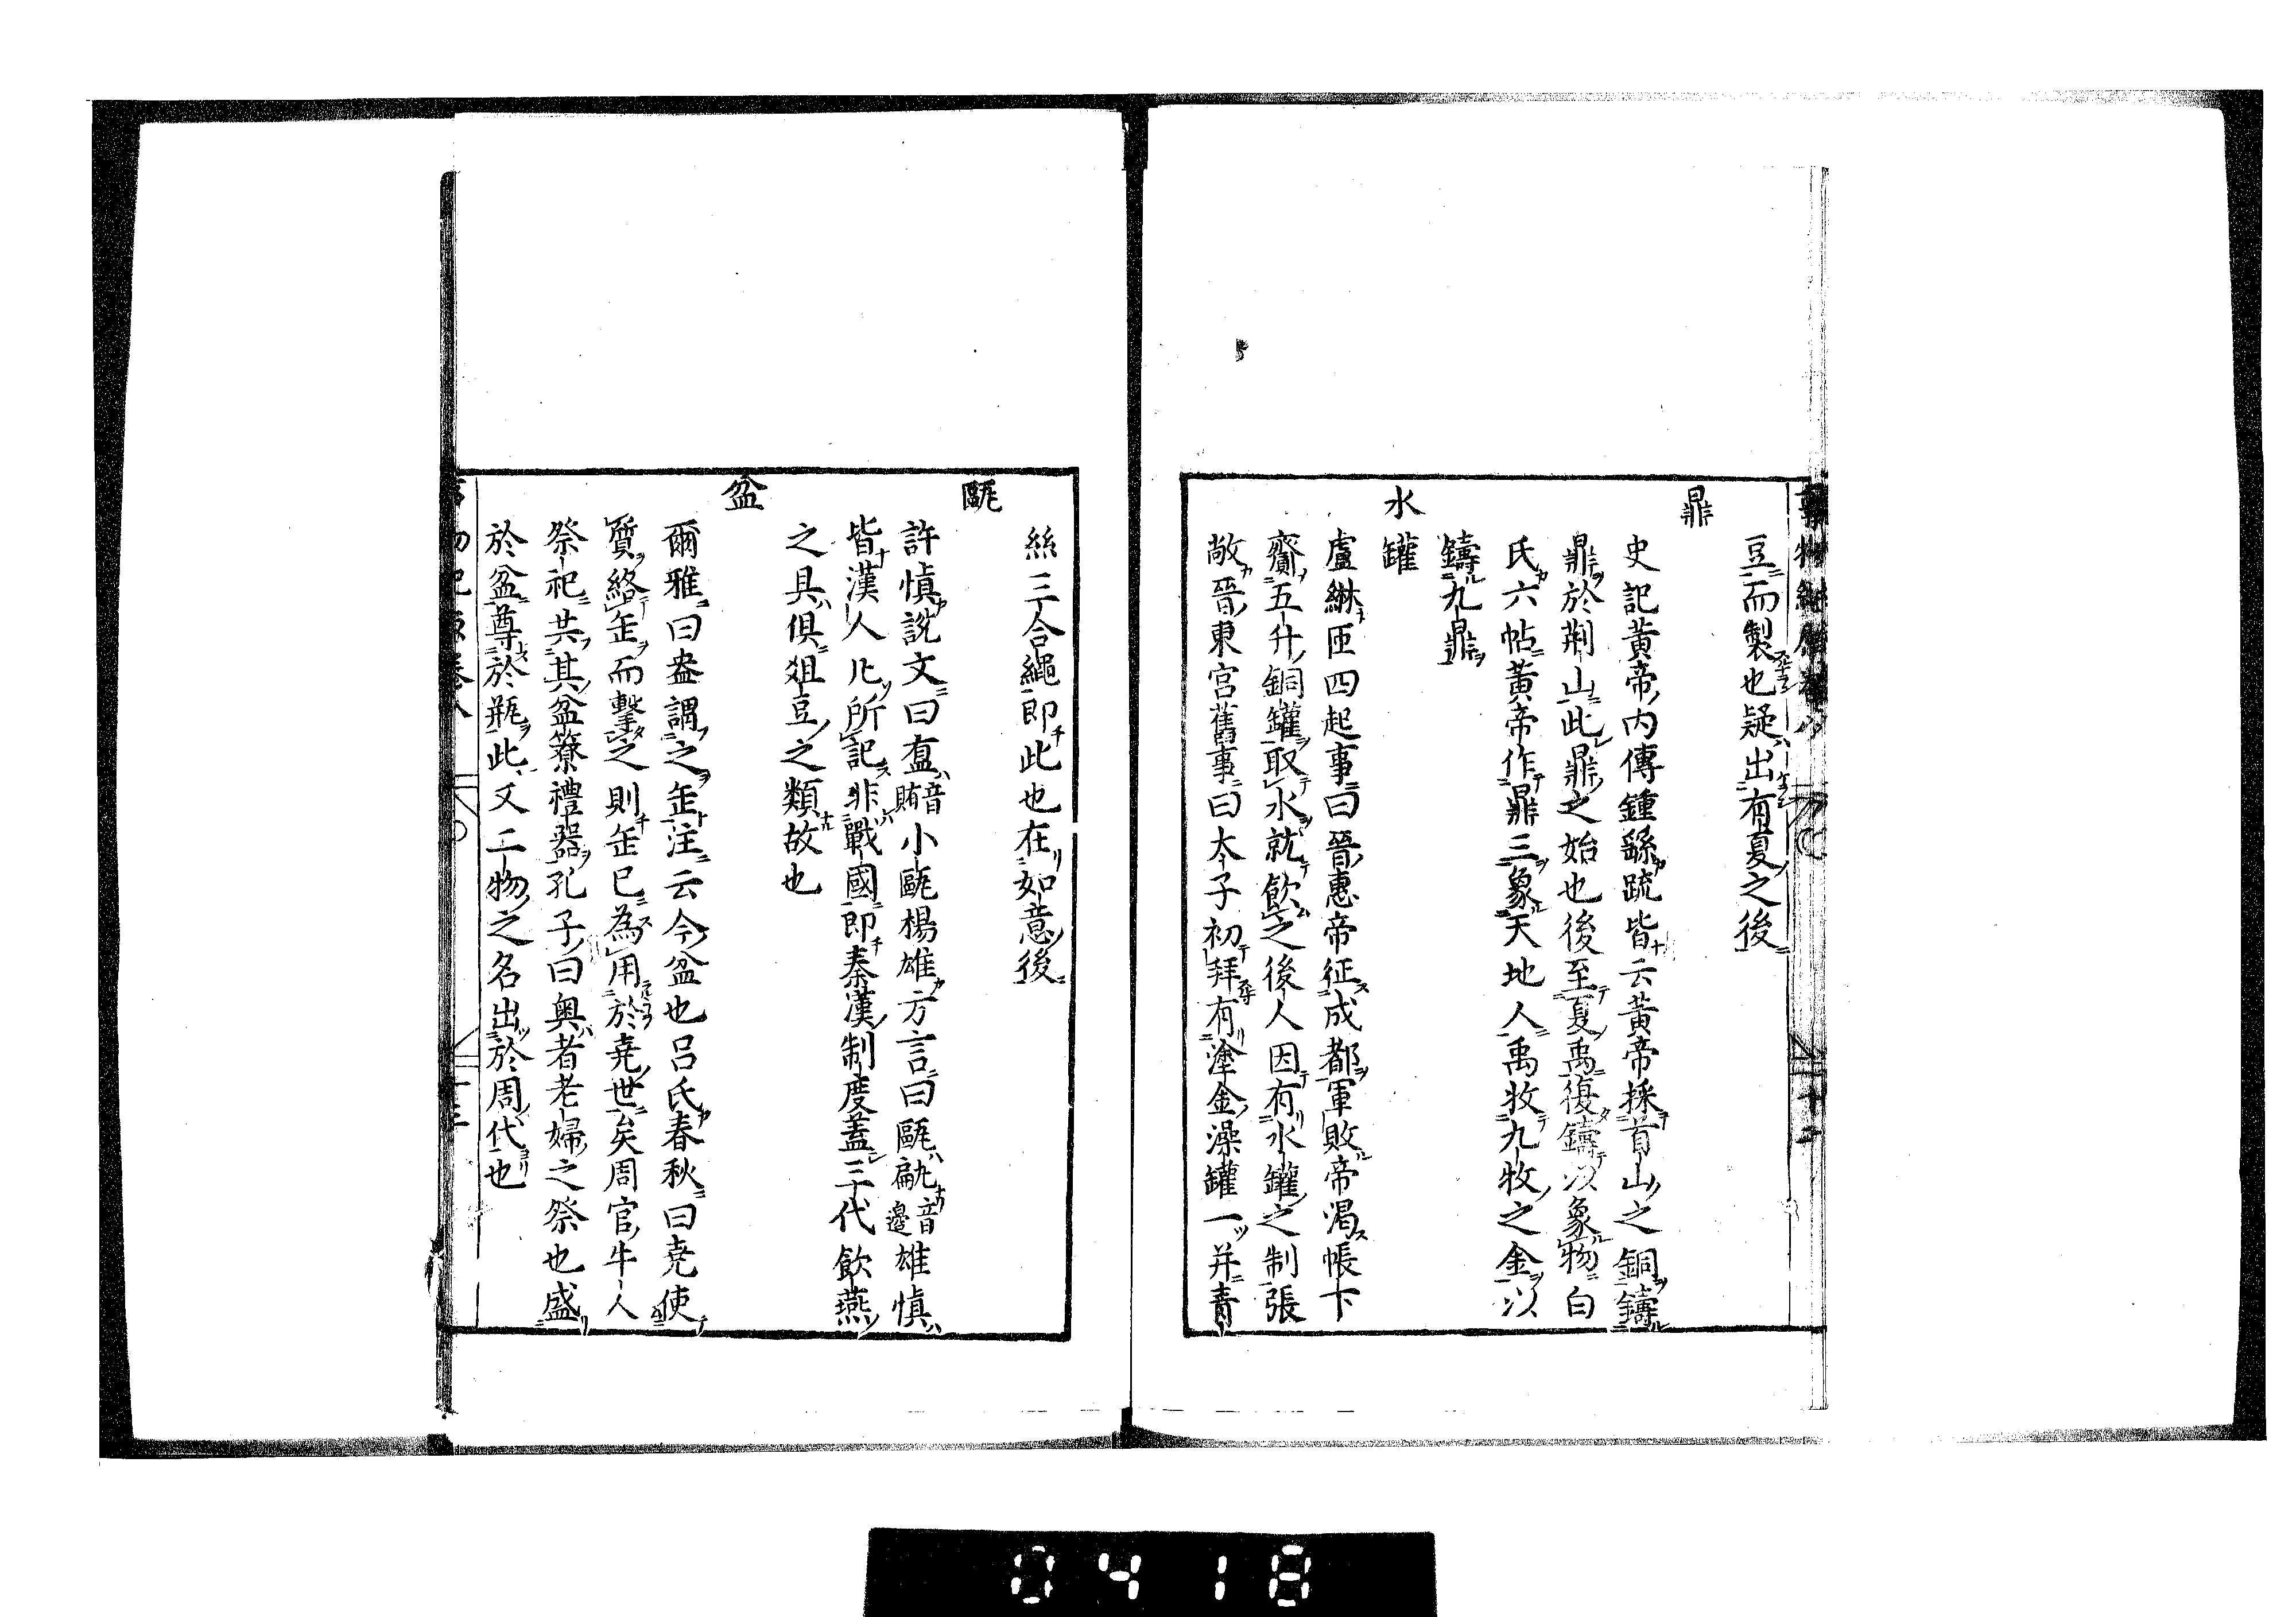 豆而製也疑出有夏之後
鼎
史記黃帝内傳鍾繇䟽皆云黃帝採首山之銅鑄
鼎於荆山此鼎之始也後至夏禹復鑄以象物白
氏六帖黃帝作鼎三象天地人禹牧九牧之金以
鑄九鼎
水罐
盧綝四起事曰晉惠帝征成都軍敗帝渴帳下
齎五升銅罐取水就飲之後人因有水罐之制張
敞晉東宮舊事曰太子初拜有塗金澡罐一并青
絲三合繩即此也在如意後
甌
許慎説文曰㼜音賄小甌楊雄方言曰甌㼐音邊雄慎
皆漢人凡所記非戰國即秦漢制度蓋三代飲燕
之具俱俎豆之類故也
盆
爾雅曰盎謂之缶注云今盆也吕氏春秋曰堯使
質絡缶而擊之則缶已為用於堯世矣周官牛人
祭祀共其盆簝禮器孔子曰奥者老婦之祭也盛
於盆尊於瓶此又二物之名出於周代也
0418